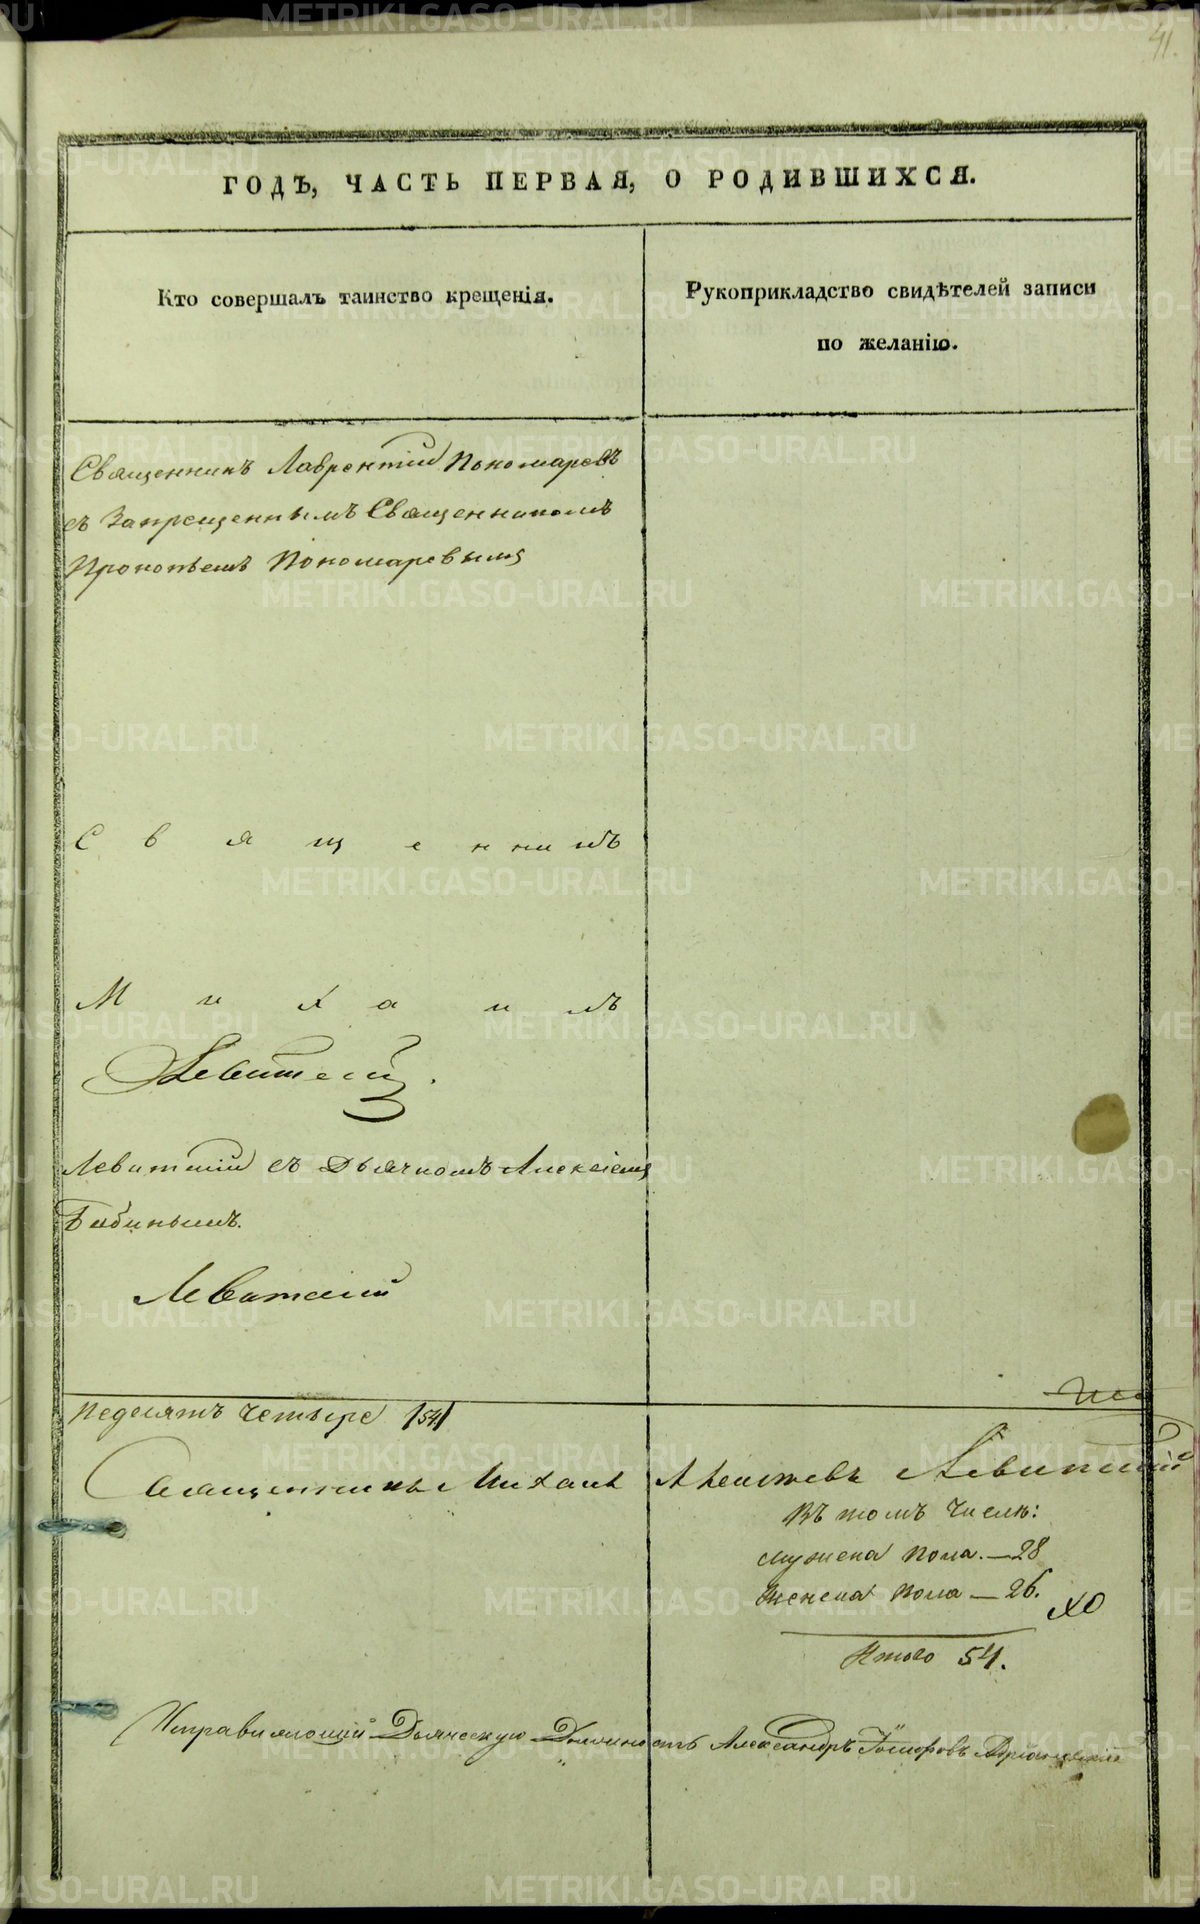 41.
ГОДЪ, ЧАСТЬ ПЕРВАЯ, О РОДИВШИХСЯ.
Кто совершалъ таинство крещенія.
Рукоприкладство свидѣтелей записи
по желанію.
Священникъ Лаврентій Пономаревъ
съ Запрещеннымъ Священникомъ
Прокопьемъ Пономаревымъ
Священникъ
Михаилъ
Левитскій.
Левитскій съ Дьячкомъ Алексіемъ
Бабинымъ.
Левитскій
педесятъ четыре /54/
Священникъ Михаилъ Алексѣевъ Левитскій
Въ томъ числѣ:
мужеска пола. — 28
женска пола — 26.
Итого 54.
Исправляющій Дьяческую Должность Александръ
METRIKI.GASO-URAL.RU